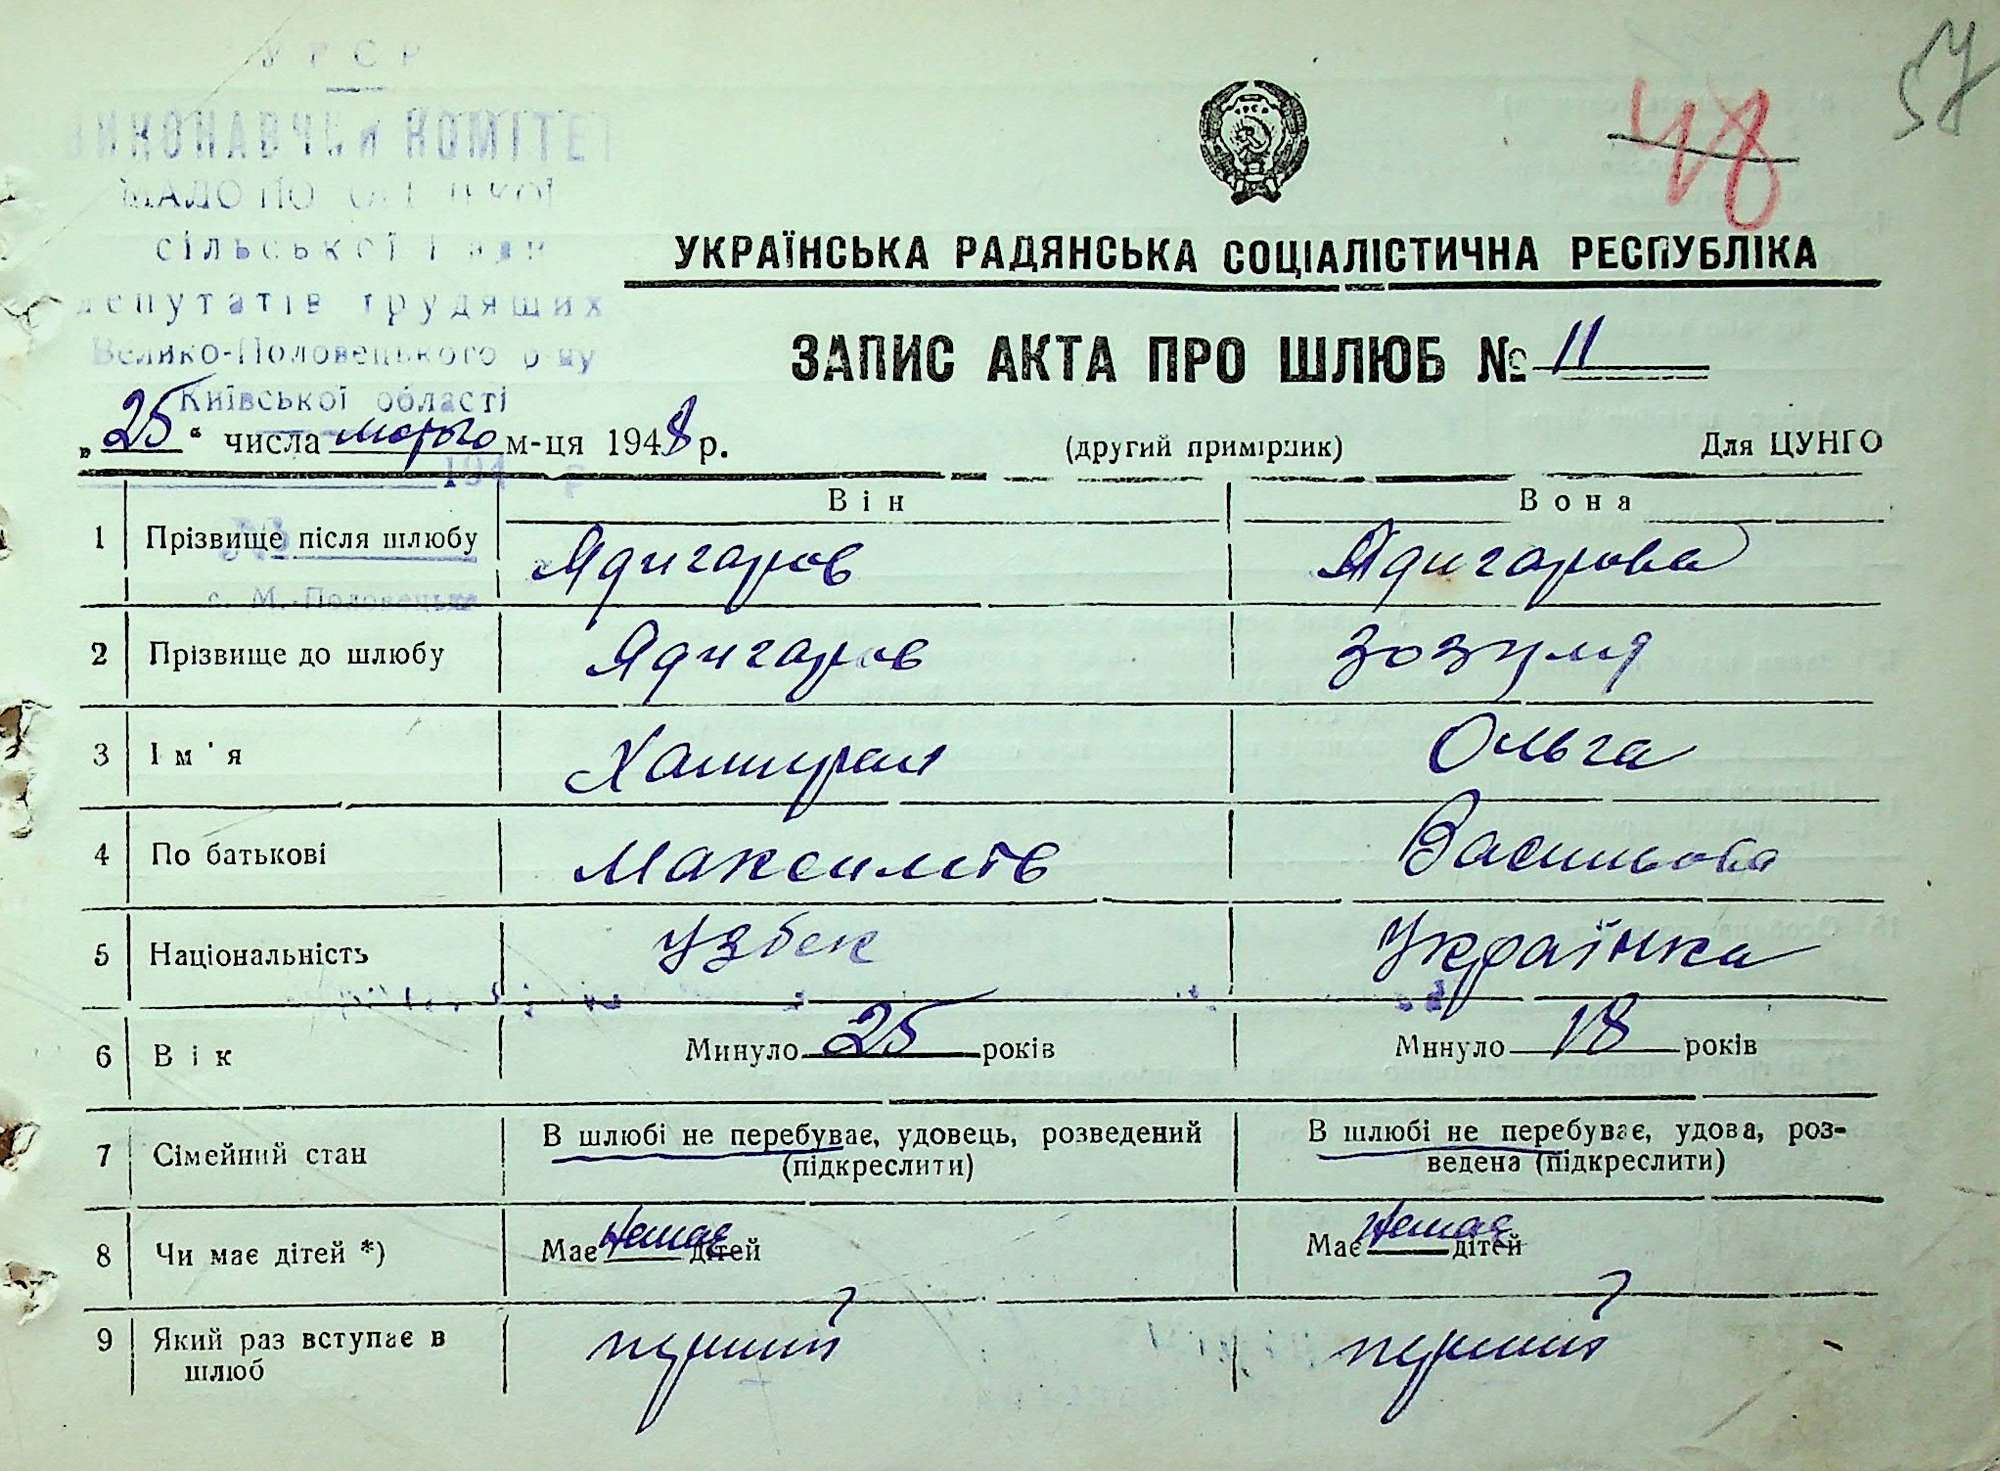 УРСР
ВИКОНАВЧИЙ КОМІТЕТ
МАЛОПО
сільської Ради
депутатів трудящих
Велико-Половецького р-ну
Київської області
194 р
с. М.-Половецьке
48
57
УКРАЇНСЬКА РАДЯНСЬКА СОЦІАЛІСТИЧНА РЕСПУБЛІКА
ЗАПИС АКТА ПРО ШЛЮБ № 11
„25“ числа лютого м-ця 1948 р. (другий примірник) Для ЦУНГО
Він Вона
1 Прізвище після шлюбу Ядигаров Ядигарова
2 Прізвище до шлюбу Ядигаров Зозуля
3 Ім'я Ольга
4 По батькові Васильовна
5 Національність Узбек Українка
6 Вік Минуло 25 років Минуло 18 років
7 Сімейний стан В шлюбі не перебуває, удовець, розведений (підкреслити) В шлюбі не перебуває, удова, роз-
ведена (підкреслити)
8 Чи має дітей *) Має немає дітей Має немає дітей
9 Який раз вступає в шлюб перший перший